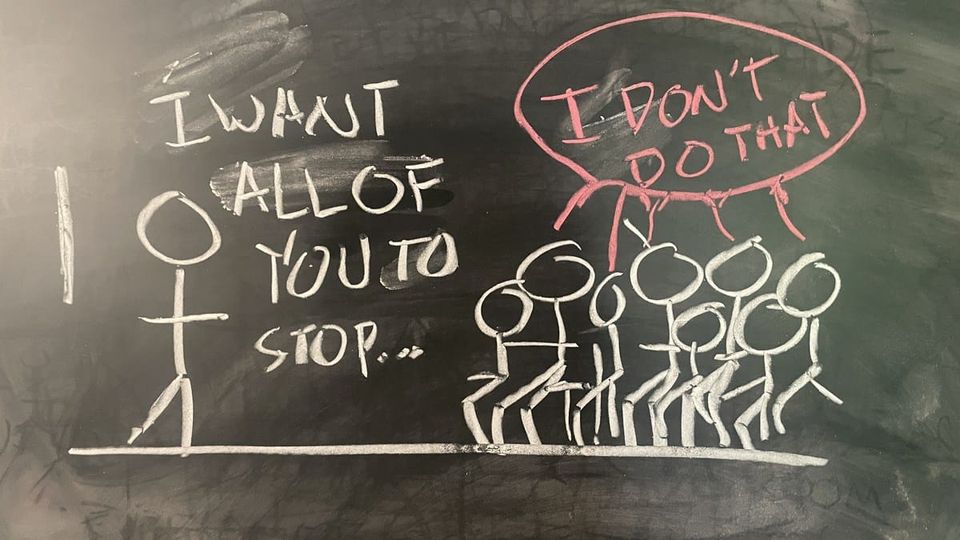 I WANT
ALL OF
YOU TO
STOP...
I DON'T
DO THAT